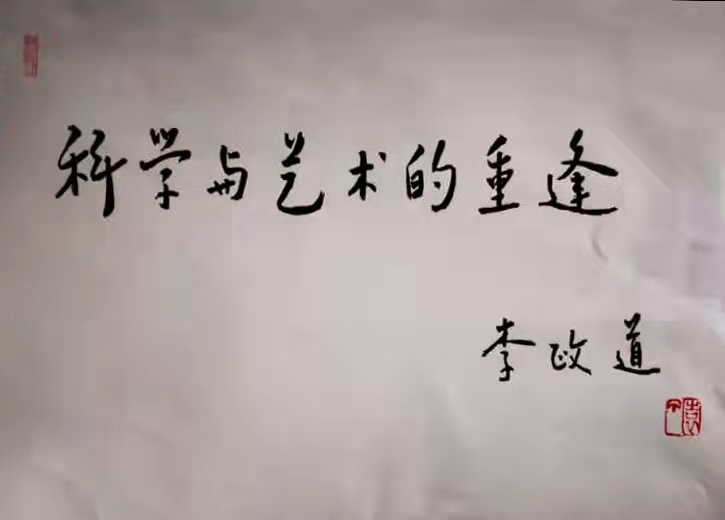 科学与艺术的重逢
李政道